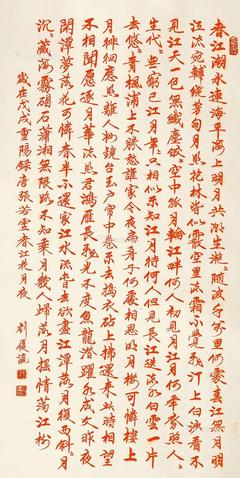 春江潮水連海平海上明月共潮生灩灩隨波千萬里何處春江無月明
江流宛轉繞芳甸月照花林皆似霰空里流霜不覺飛汀上白沙看不
見江天一色無纖塵皎皎空中孤月輪江畔何人初見月江月何年初照人人
生代代無窮已江月年年只相似不知江月待何人但見長江送流水白雲一片
去悠悠青楓浦上不勝愁誰家今夜扁舟子何處相思明月樓可憐樓上
月徘徊應照離人妝鏡台玉戶簾中卷不去搗衣砧上拂還來此時相望
不相聞願逐月華流照君鴻雁長飛光不度魚龍潛躍水成文昨夜
閑潭夢落花可憐春半不還家江水流春去欲盡江潭落月復西斜斜月
沉沉藏海霧碣石瀟湘無限路不知乘月幾人歸落月搖情滿江樹
歲在戊戌重陽錄唐張若虛春江花月夜